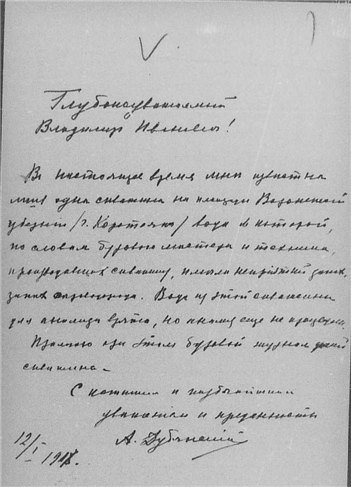 Глубокоуважаемый
Владимир Иванович!
В настоящее время мне известна
лишь одна скважина на площади Воронежской
губернии /г. Коротояк/ вода в которой,
по словам бурового мастера и техника,
проводивших скважину, имела неприятный запах,
запах сероводорода. Вода из этой скважины
для анализа взята, но анализ еще не
Прилагаю при этом буровой журнал
скважины.
С истинным и глубочайшим
уважением и преданностью
А. Дубянский
12/I 191